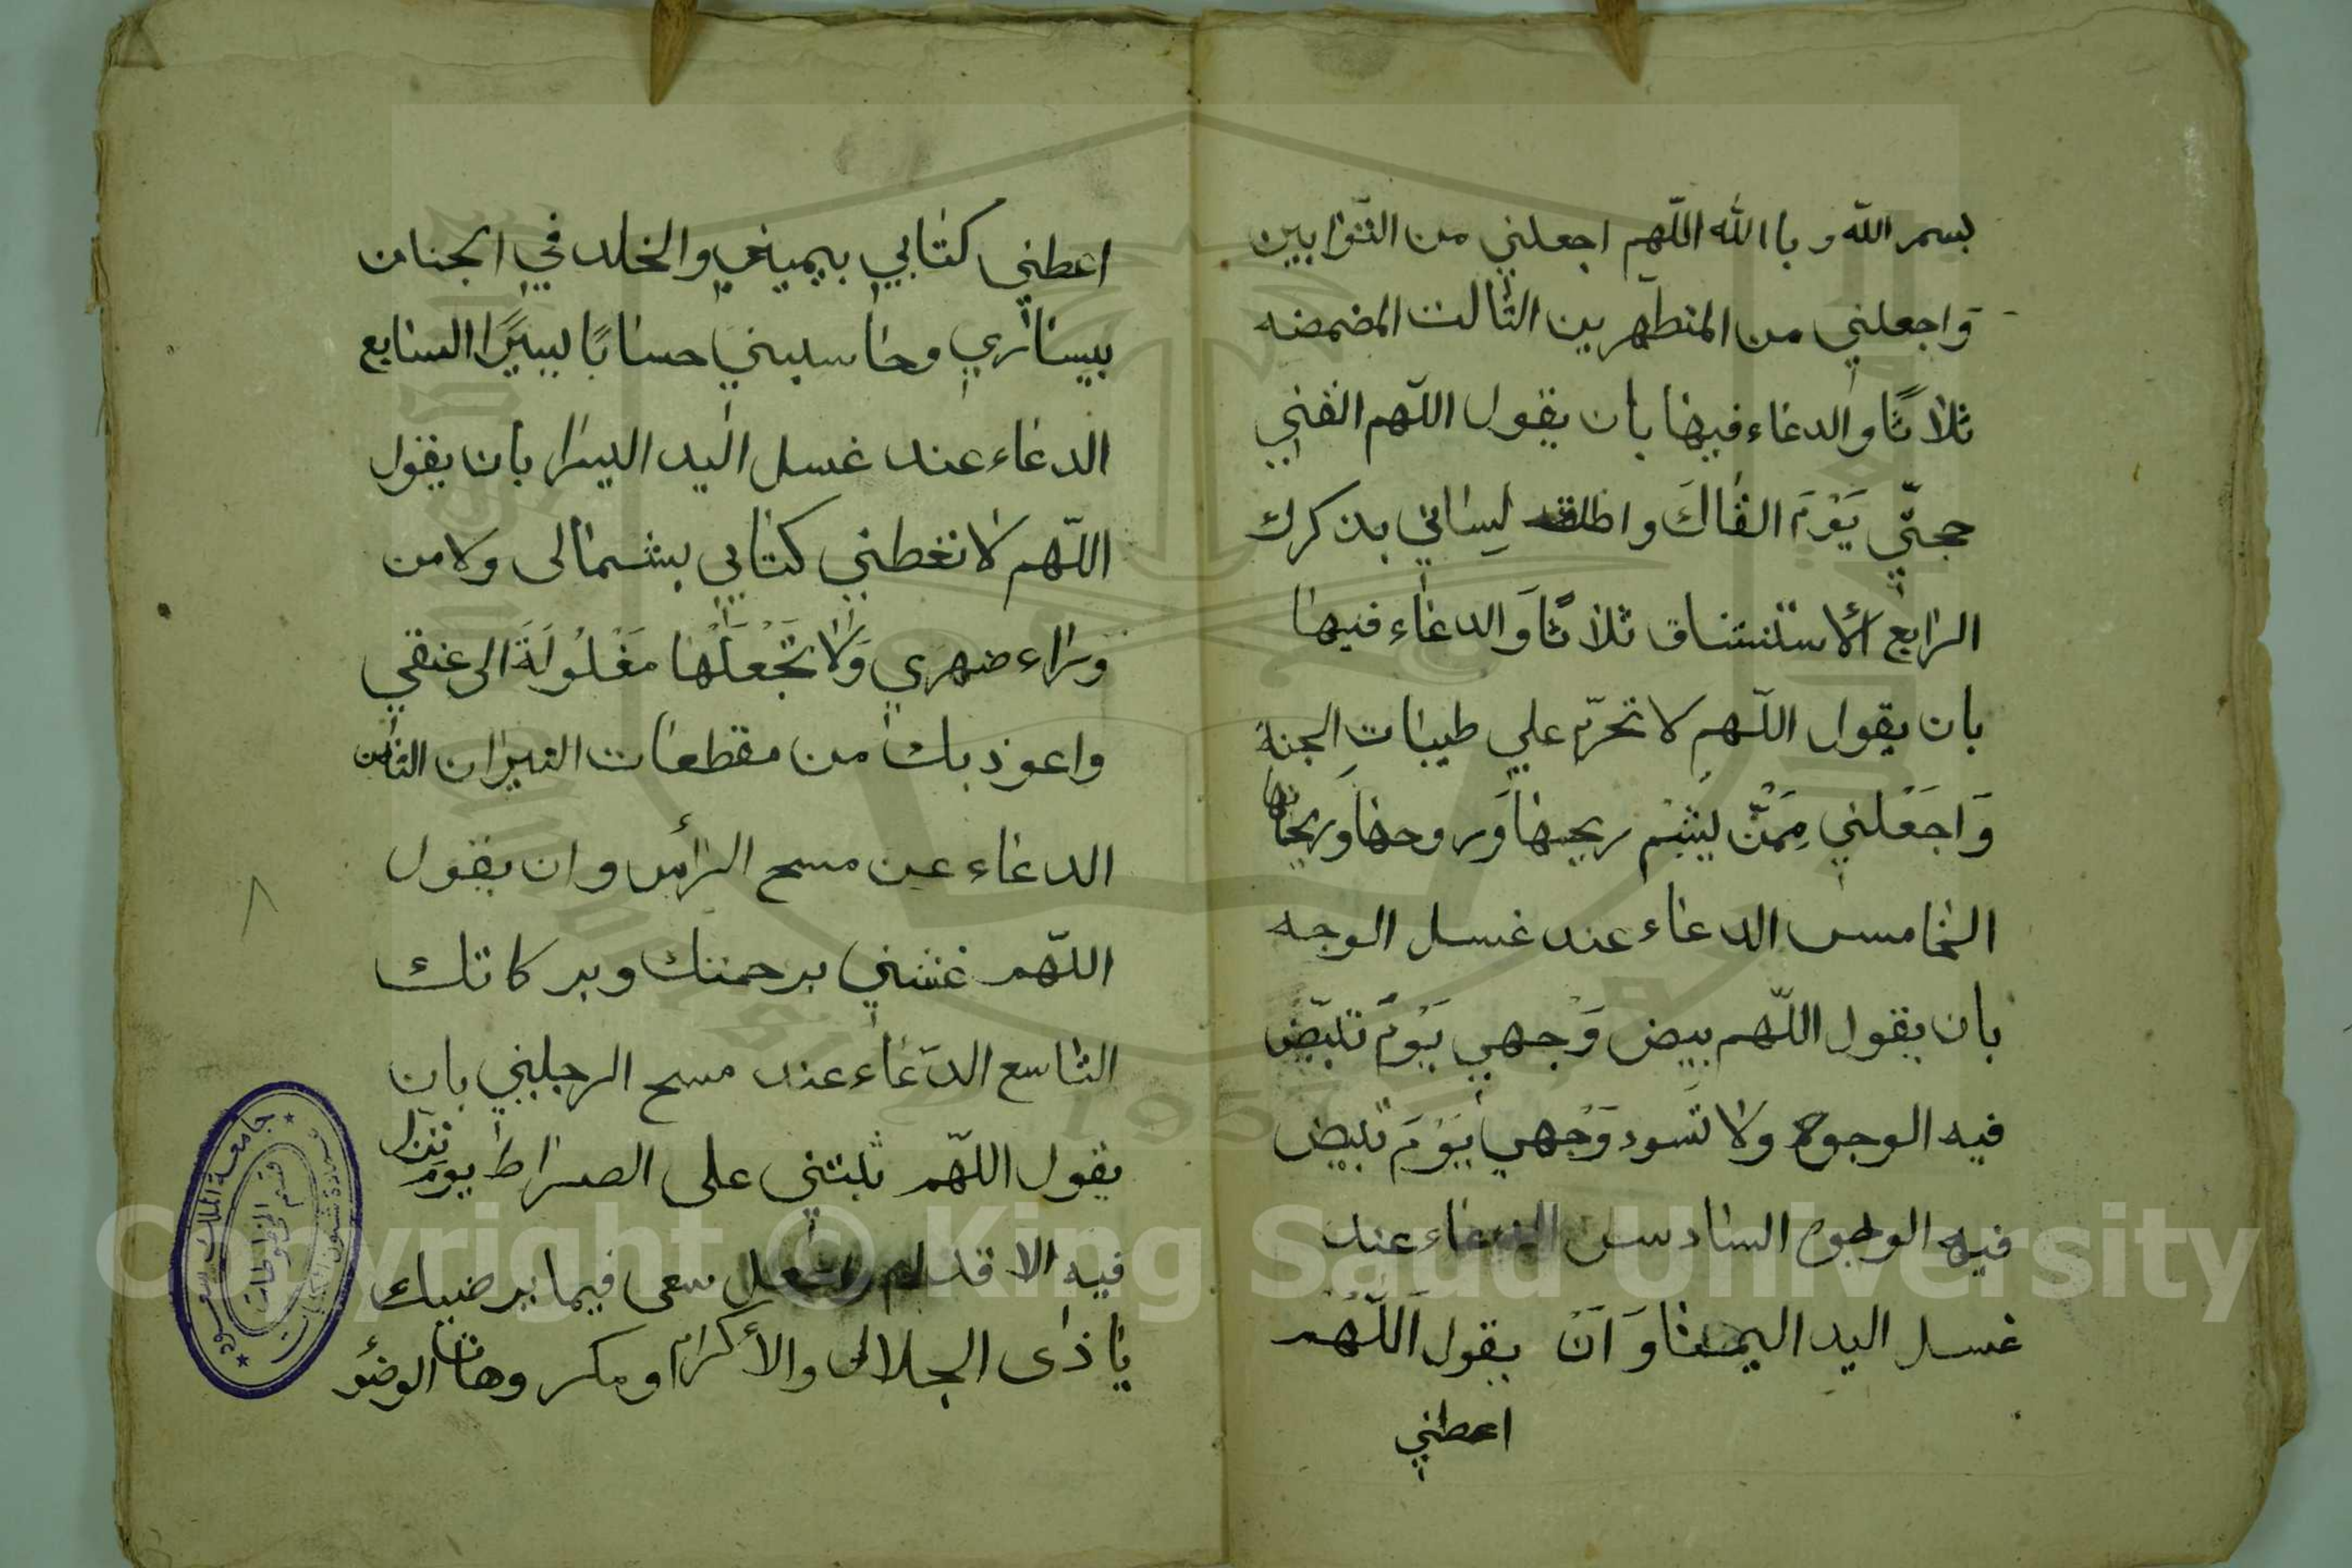 بسم الله وباالله اللّهم اجعلني من التّوابين
وَاجعلني من المتطهرين الثالث المضمضه
ثلاثًا والدعاء فيها بان يقول اللّهم القني
حجتّي يَوْمَ القاكَ واطلق لِساني بذكرك
الرابع الأستنشاق ثلاثًا وَالدعاء فيها
بان يقول اللّهم لا تحرّم علي طيبات الجنة
وَاجَعْلني مِمَنّْ يَشْم ريحها وَروحها وَريحانها
الخامس الدعاء عند غسل الوجه
بان يقول اللّهم بيض وَجهي يَوْمَ تبيّض
فيه الوجوه ولا تسود وَجْهي يَوْمَ تبيض
فيه الوجوه السادس الدعاء عند
غسل اليد اليمنا وَاَنْ يقول اَللّهُم
اعطني
اعطني كتابي بيميني والخلد في الجنان
بيساري وحاسبني حسابًا يسيرًا السابع
الدعاء عند غسل اليد اليسرا بان يقول
اللّهم لا تعطني كتابي بشمالى ولا من
وراء ضهري وَلا تَجْعَلْها مَغْلُولَةَ الى عنقي
واعوذ بك من مقطعات النيران الثامن
الدعاء عن مسح الرأس وان يقول
اللّهم غشني برحمتك وبركاتك
التاسع الدّعاء عند مسح الرجليني بان
يقول اللّهم ثبتني على الصراط يوم تزل
فيه الاقدام واجعل سعى فيما يرضيك
يا ذى الجلال والأكرام ومكروهات الوضؤ
٨
جامعة الملك سعود
عمادة شئون المكتبات
قسم المخطوطات
Copyright © King Saud University
1957